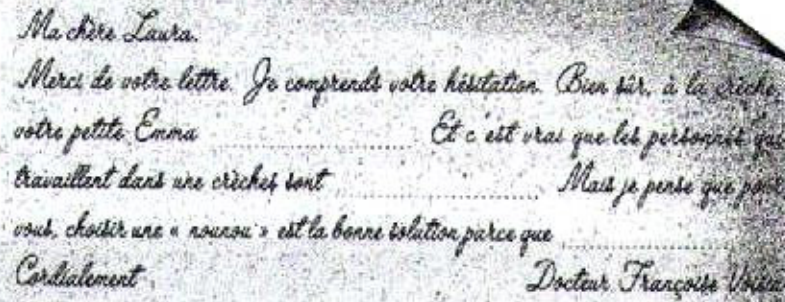 Ma chère Laura.
Merci de votre lettre. Je comprends votre hésitation. Bien sûr, à la crèche,
votre petite Emma ........................ Et c'est vrai que les personnes qui
travaillent dans une crèches sont ........................ Mais je pense que pour
vous, choisir une « nounou » est la bonne solution parce que ........................
Cordialement, Docteur Françoise Voisin